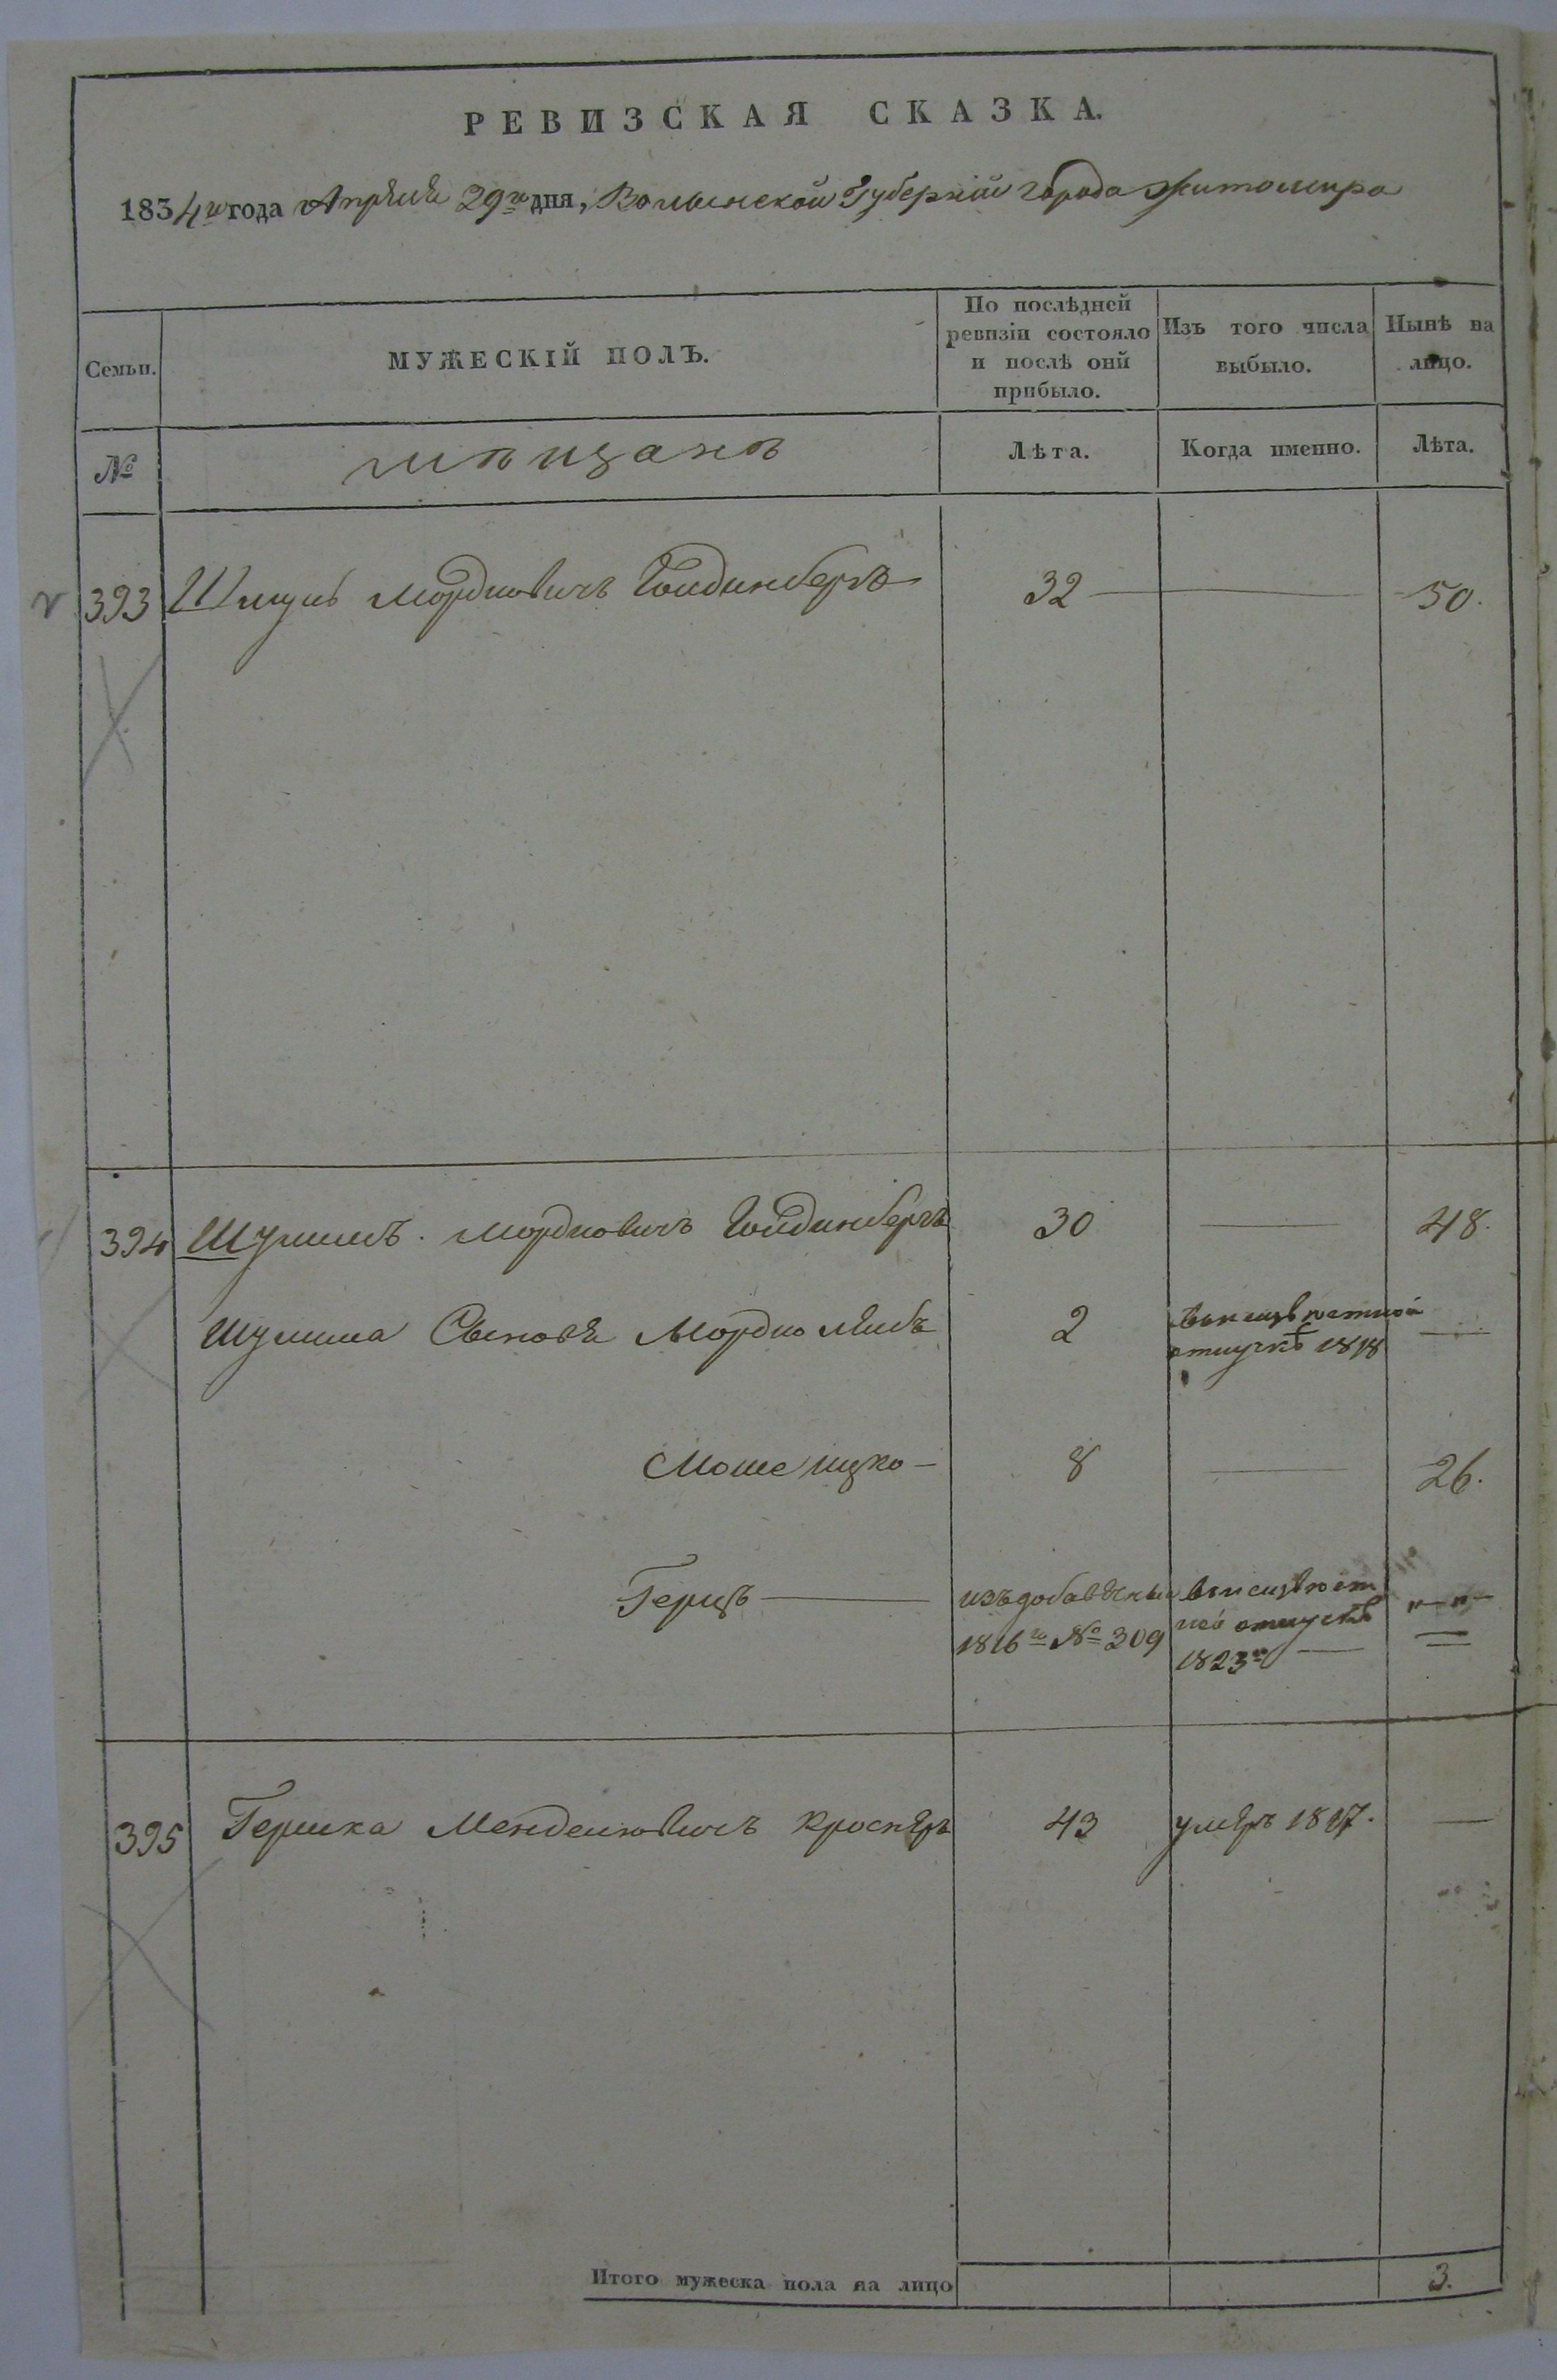 РЕВИЗСКАЯ СКАЗКА.
1834го года Апрѣля 29го дня, Волынской Губерніи города Житомира
Семьи.
МУЖЕСКІЙ ПОЛЪ.
По послѣдней ревизіи состояло и послѣ оній прибыло.
Изъ того числа выбыло.
Нынѣ на лицо.
№
мѣщанъ
Лѣта.
Когда именно.
Лѣта.
393 Шмуль Мордковичъ Гольденбергъ 32 — 50.
394 Шулимъ Мордковичъ Гольденбергъ 30 — 48.
Шулима Сыновья Мордко Лейбъ 2
отпускѣ 1818 —
Моше Ицко — 8 — 26.
Герцъ — изъ добавочныхъ
1816го № 309
отпускѣ
1823го —
395 Гершка Менделіовичъ 43 умеръ 1817. —
Итого мужеска пола на лицо 3.